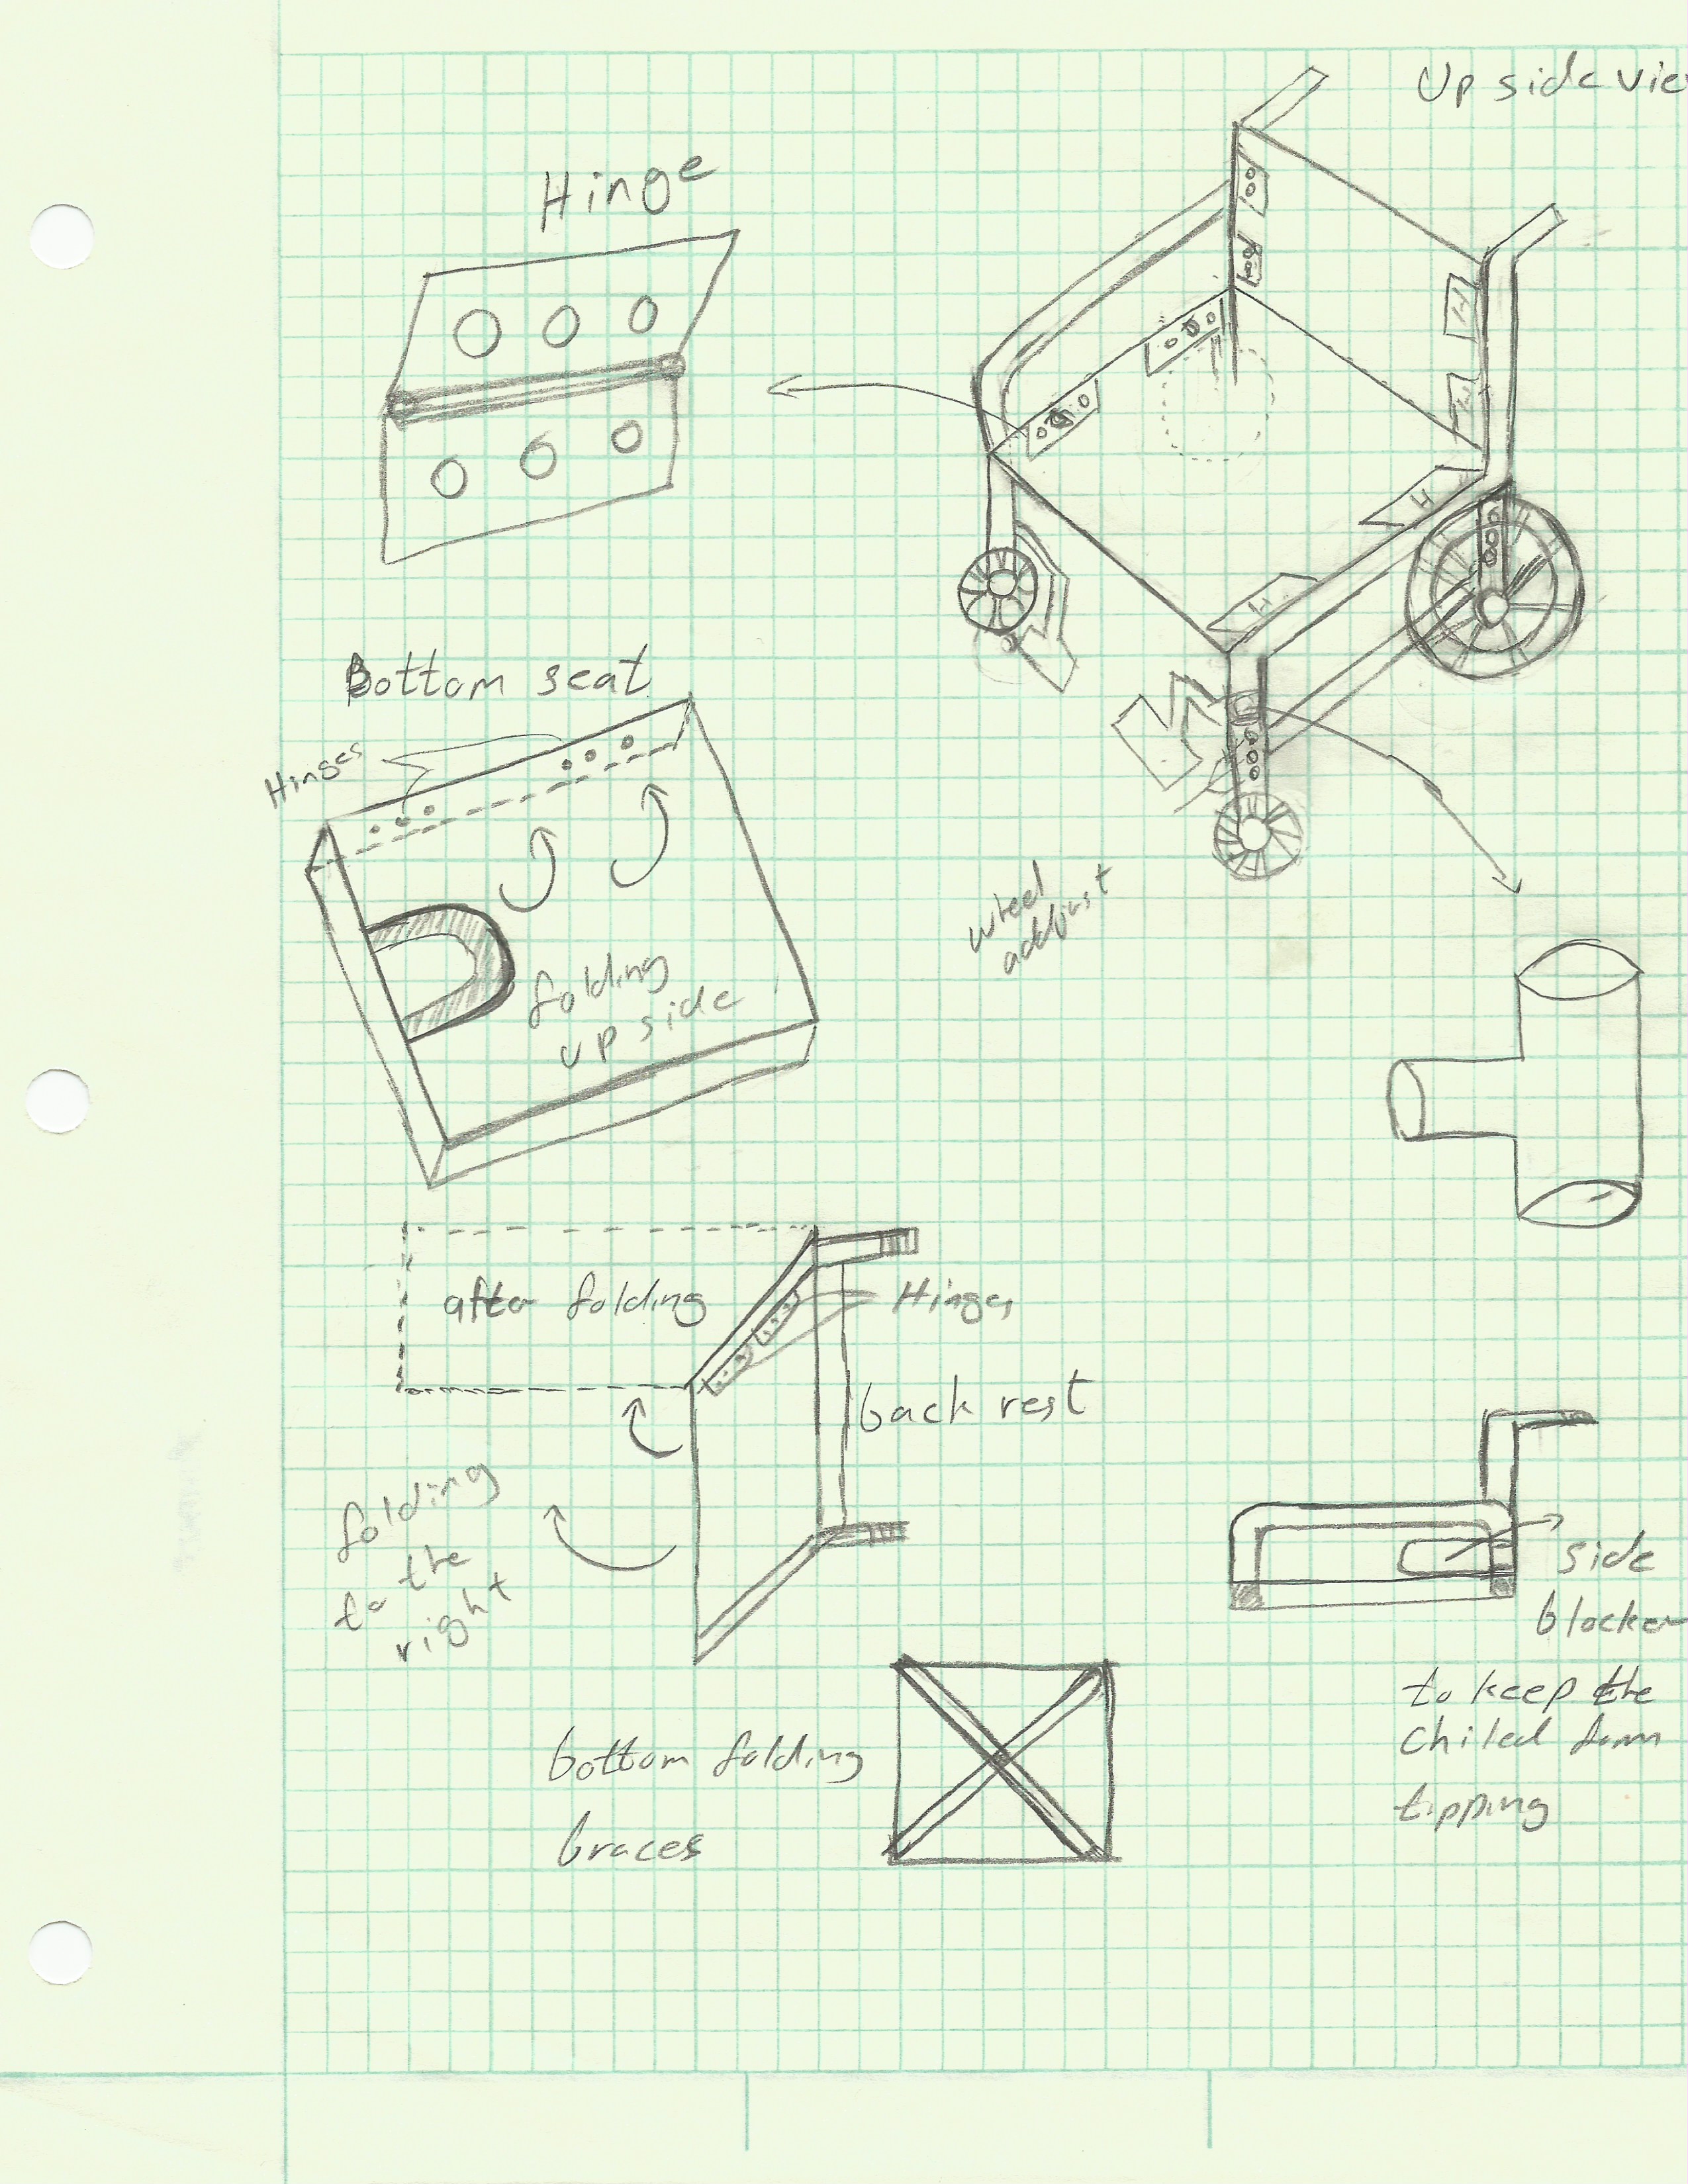 Up side vie
Hinge
H
H
H
H
Bottom seat
Hinges
folding
up side
wheel
addjust
after folding
Hinges
back rest
folding
to the
right
side
blocker
to keep the
chiled from
tipping
bottom folding
braces